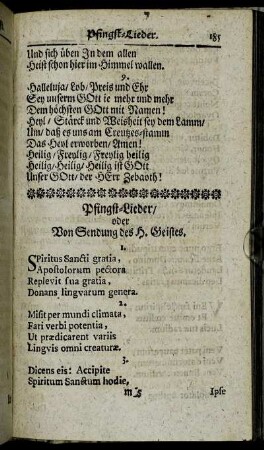 Pfingst-Lieder. 185
Und sich üben Zu dem allen
Heist schon hier im Himmel wallen.
9.
Halleluja/ Lob/ Preis und Ehr
Sey unserm GOtt ie mehr und mehr
Dem höchsten GOtt mit Namen!
Heyl/ Stärck und Weisheit sey dem Lamm/
Um/ daß es uns am Creutzes-stamm
Das Heyl erworben/ Amen!
Heilig/ Freylig/ Freylig heilig
Heilig/ Heilig/ Heilig ist GOtt
Unser GOtt/ der HErr Zebaoth!
Pfingst-Lieder/
oder
Von Sendung des H. Geistes.
1.
Spiritus Sancti gratia,
Apostolorum pectora
Replevit sua gratia,
Donans lingvarum genera.
2.
Misit per mundi climata,
Fari verbi potentia,
Ut prædicarent variis
Lingvis omni creaturæ.
3.
Dicens eis: Accipite
Spiritum Sanctum hodie,
m 5 Ipse